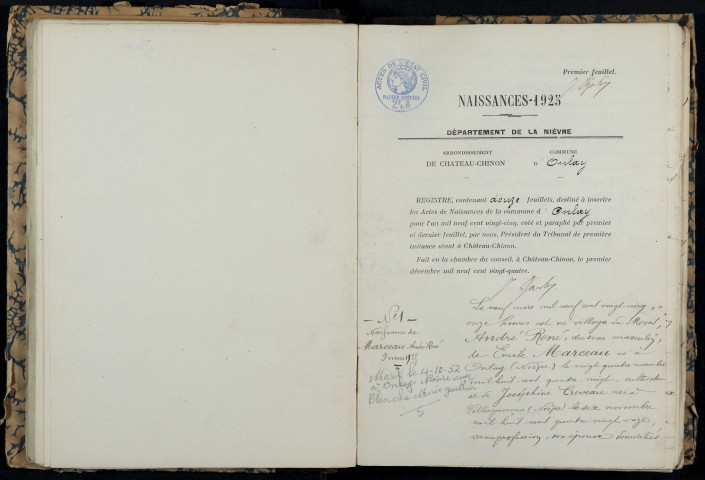 Premier feuillet.
ACTES DE L'ETAT CIVIL
PAPIER SPECIAL
NAISSANCES-1925
DÉPARTEMENT DE LA NIÈVRE
ARRONDISSEMENT
DE CHATEAU-CHINON
COMMUNE
D'Onlay
REGISTRE, contenant douze feuillets, destiné à inscrire
les Actes de Naissances de la commune d'Onlay
pour l'an mil neuf cent vingt-cinq, coté et paraphé par premier
et dernier feuillet, par nous, Président du Tribunal de première
instance séant à Château-Chinon.
Fait en la chambre du conseil, à Château-Chinon, le premier
décembre mil neuf cent vingt-quatre.
No 1
Naissance de
Marceau André René
9 mars 1925
Marié le 4-10-52
à Onlay Nièvre avec
Blanche Marie
Le neuf mars mil neuf cent vingt-cinq,
onze heures est né village du
André René, du sexe masculin,
de Emile Marceau né à
Onlay (Nièvre) le vingt quatre novembre
mil huit cent quatre vingt, cultivateur
et de Joséphine née à
Villapourçon (Nièvre) le dix novembre
mil huit cent quatre vingt onze,
sans profession, son épouse domiciliés